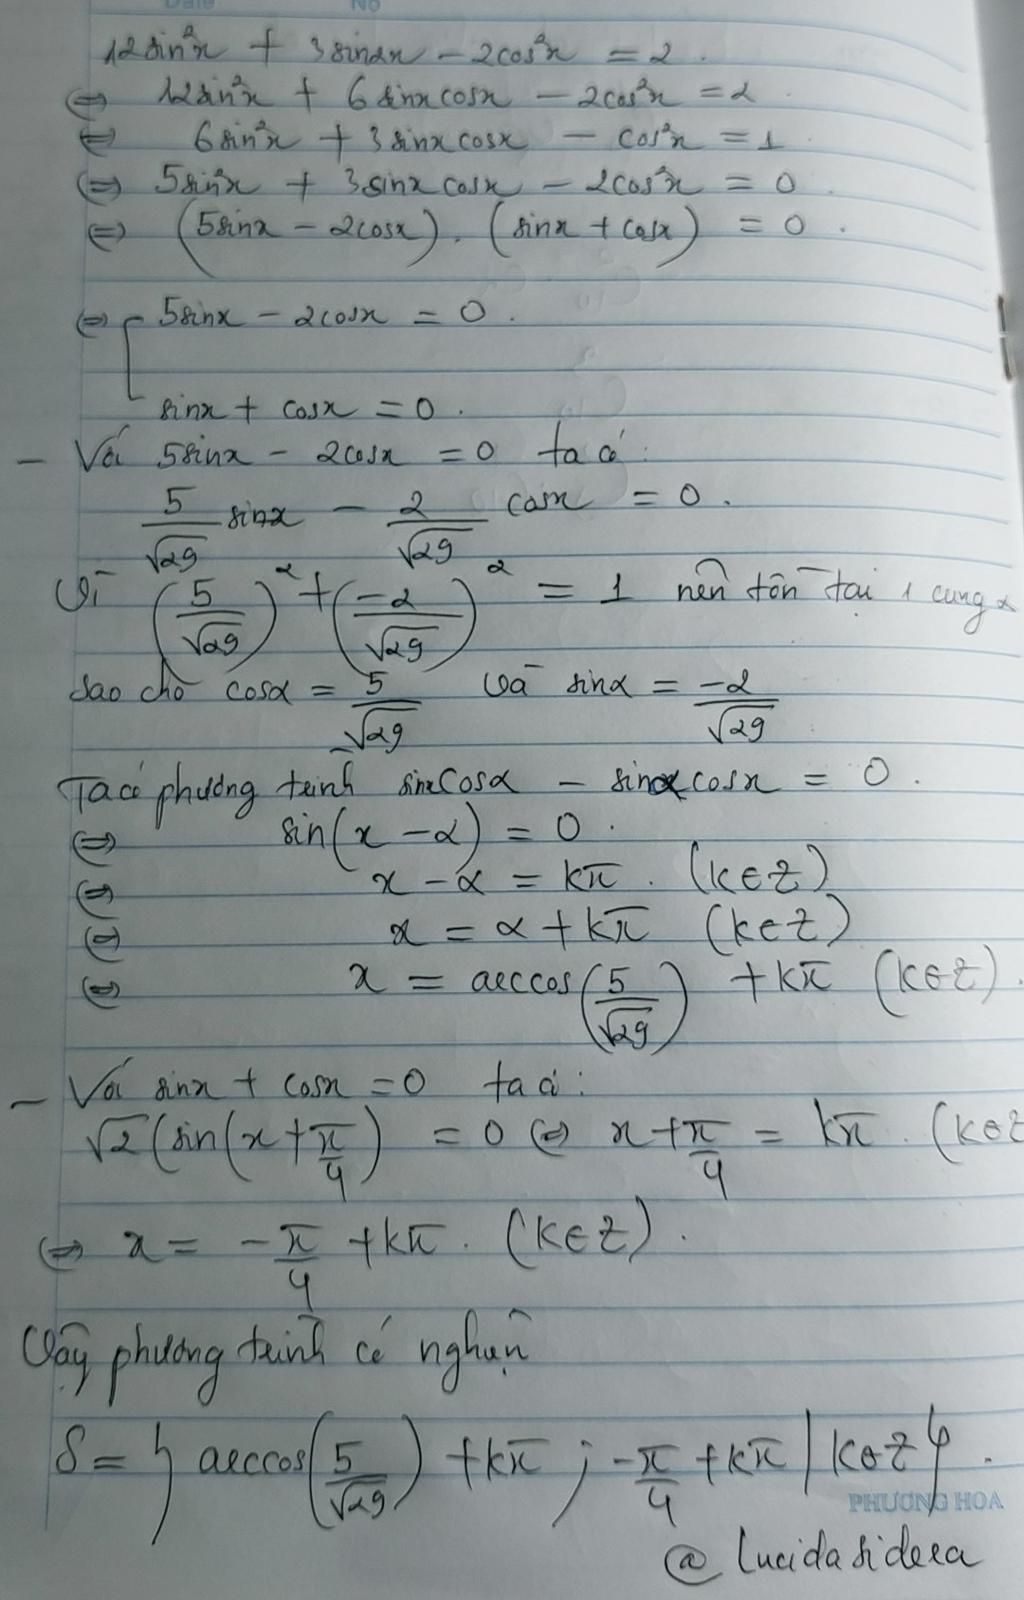 Date No
12sin²x + 3sin2x - 2cos²x = 2.
⇔ 12sin²x + 6sinxcosx - 2cos²x = 2.
⇔ 6sin²x + 3sinxcosx - cos²x = 1.
⇔ 5sin²x + 3sinxcosx - 2cos²x = 0
⇔ (5sinx - 2cosx).(sinx + cosx) = 0.
⇔ [ 5sinx - 2cosx = 0.
sinx + cosx = 0.
- Với 5sinx - 2cosx = 0 ta có:
5/√29 sinx - 2/√29 cosx = 0.
Vì (5/√29)² + (-2/√29)² = 1 nên tồn tại 1 cung α
sao cho cosα = 5/√29 và sinα = -2/√29
Ta có phương trình sinxcosα - sinαcosx = 0.
⇔ sin(x - α) = 0.
⇔ x - α = kπ. (k∈Z)
⇔ x = α + kπ (k∈Z)
⇔ x = arccos(5/√29) + kπ (k∈Z).
- Với sinx + cosx = 0 ta có:
√2(sin(x + π/4) = 0 ⇔ x + π/4 = kπ. (k∈Z
⇔ x = -π/4 + kπ. (k∈Z).
Vậy phương trình có nghiệm
S = { arccos(5/√29) + kπ; -π/4 + kπ | k∈Z }.
PHƯƠNG HOA
@lucidasidera